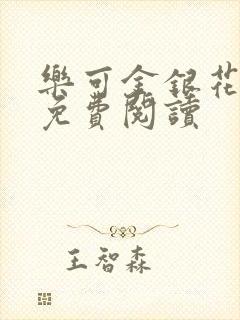 樂可金銀花
免費閱讀
王智森